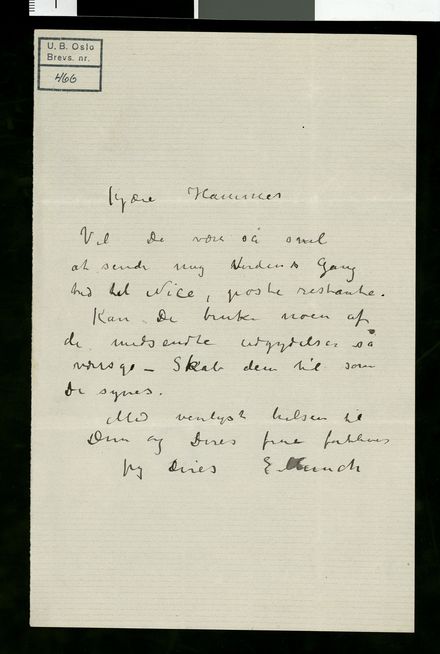 U. B. Oslo
Brevs. nr.
466
Kjære Hammer
Vil De være så snil
at sende mig Verdens Gang
hid til Nice, poste restante.
Kan De bruke noen af
de medsendte udgydelser så
værsgo – Skab dem til som
De synes.
Med venligst hilsen til
Dem og Deres frue forblives
jeg Deres E Munch